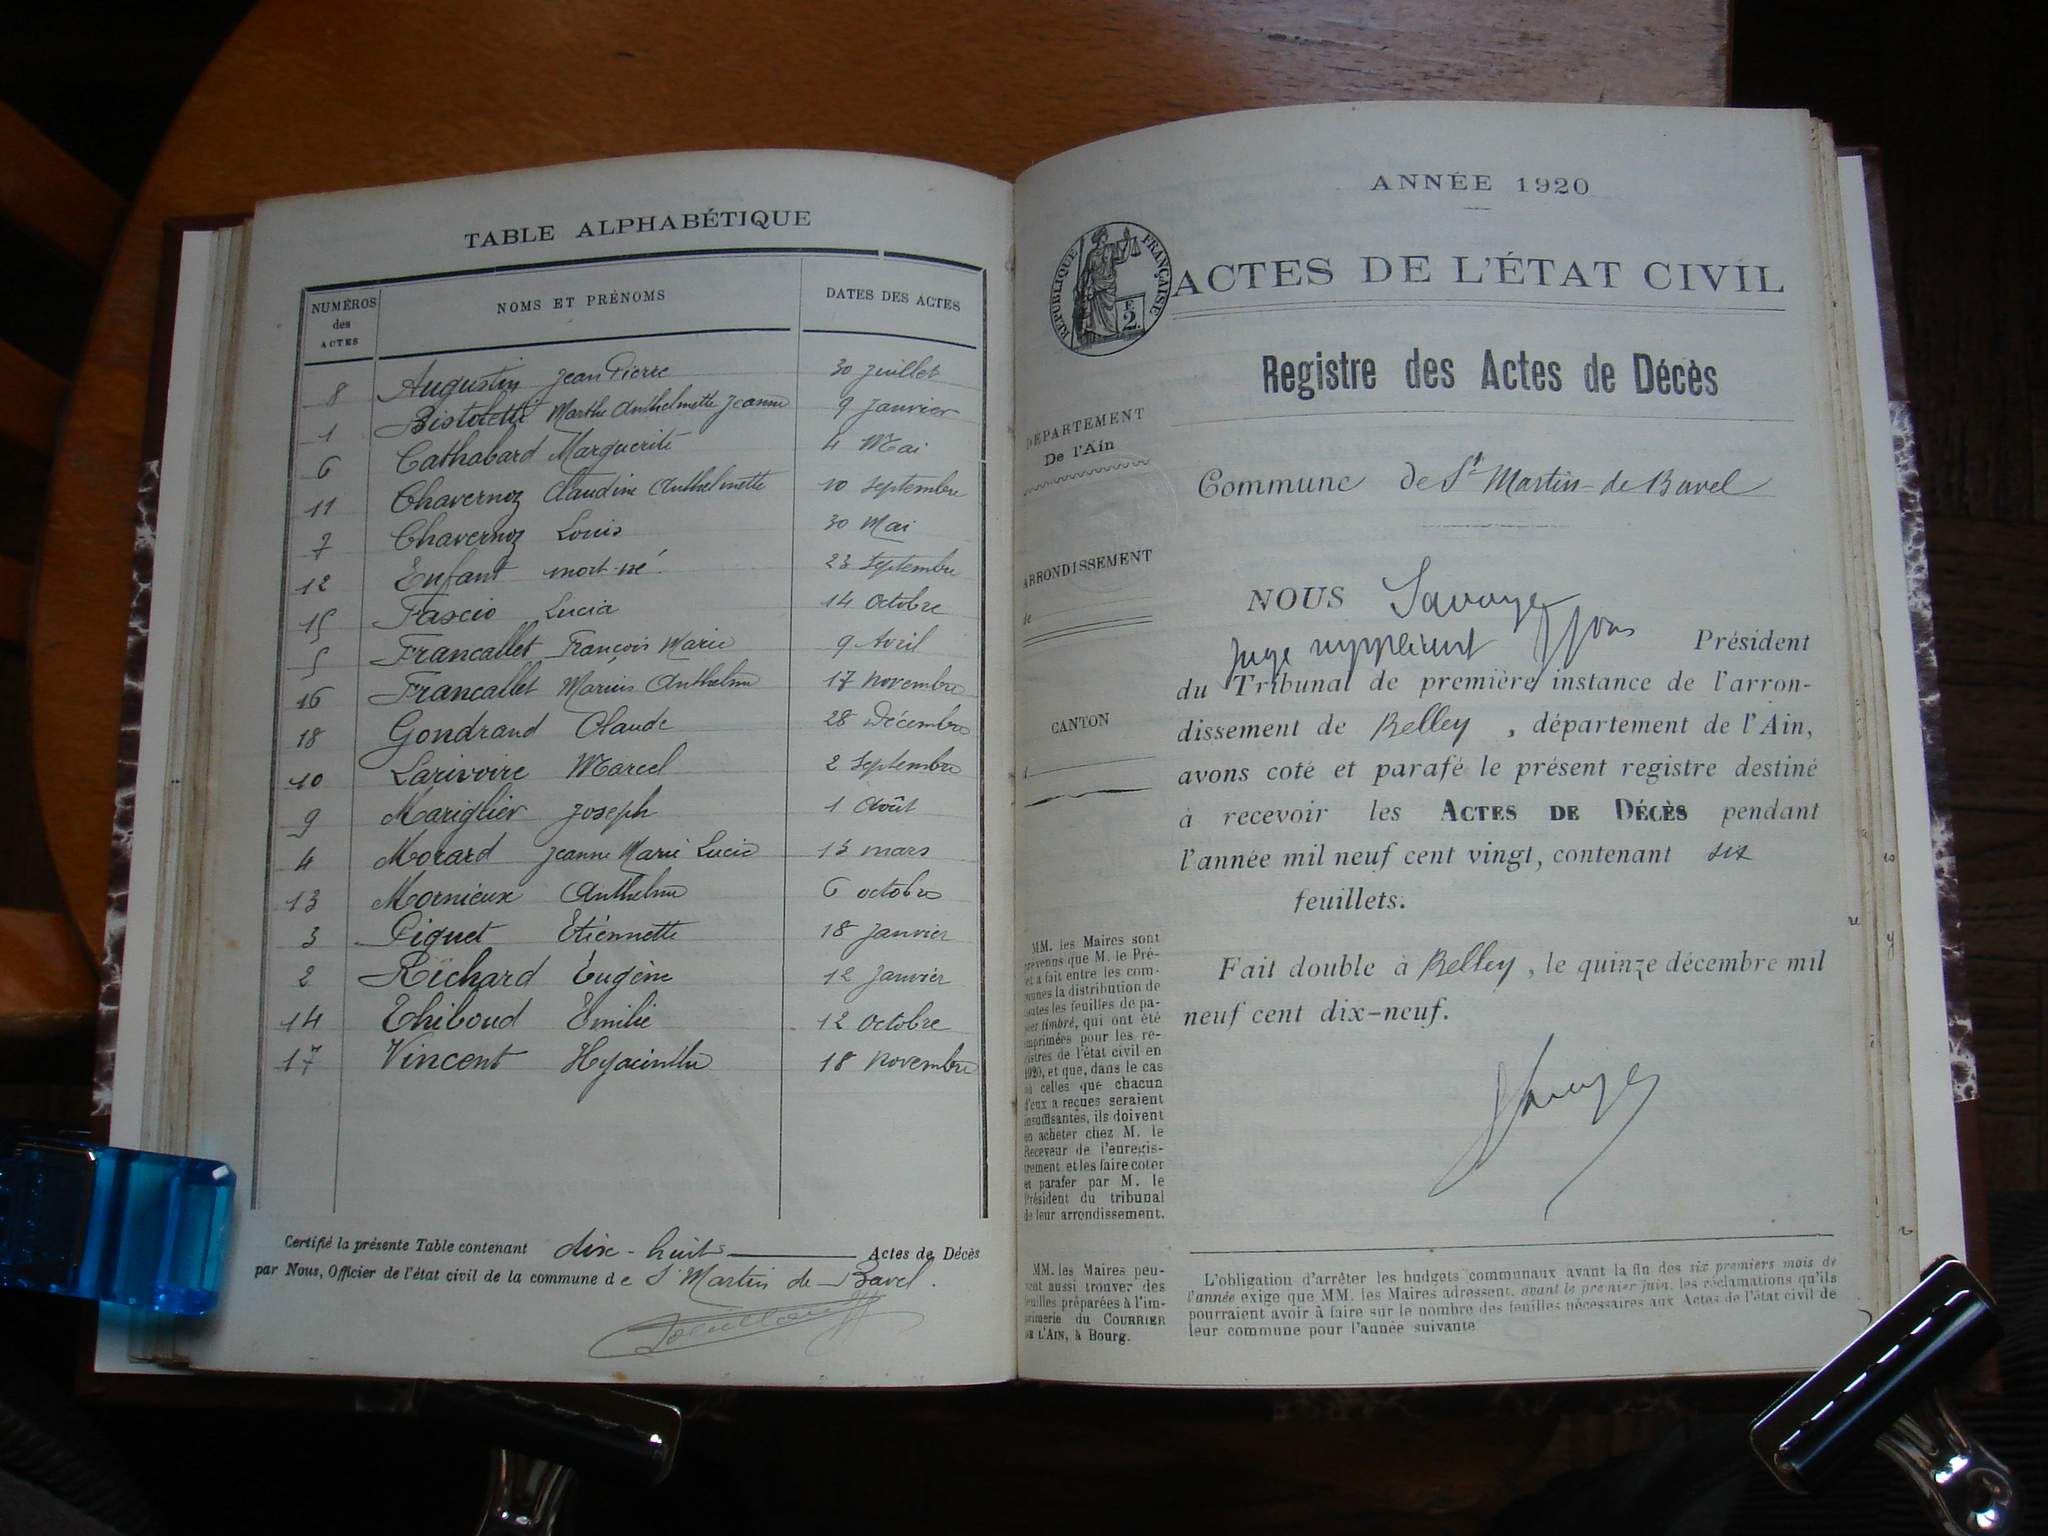 TABLE ALPHABÉTIQUE
NUMÉROS des ACTES NOMS ET PRÉNOMS DATES DES ACTES
8 Augustin Jean Pierre 30 Juillet
1 Bistoletti Marthe Anthelmette Jeanne 9 Janvier
6 Cathabard Marguerite 4 Mai
11 Chavernoz Claudine Anthelmette 10 Septembre
7 Chavernoz Louis 30 Mai
12 Enfant mort-né. 23 Septembre
15 Fascio Lucia 14 Octobre
5 Francallet François Marie 9 Avril
16 Francallet Marius Anthelme 17 Novembre
18 Gondrand Claude 28 Décembre
10 Larivoire Marcel 2 Septembre
9 Mariglier Joseph 1 Août
4 Morard Jeanne Marie Lucie 13 mars
13 Mornieux Anthelme 6 octobre
3 Piquet Etiennette 18 Janvier
2 Richard Eugène 12 Janvier
14 Thiboud Emilie 12 Octobre
17 Vincent Hyacinthe 18 Novembre
Certifié la présente Table contenant dix-huit Actes de Décès
par Nous, Officier de l'état civil de la commune de St Martin de Bavel.
ANNÉE 1920
RÉPUBLIQUE FRANÇAISE
E 2.
ACTES DE L'ÉTAT CIVIL
Registre des Actes de Décès
DÉPARTEMENT
De l'Ain
ARRONDISSEMENT
de
CANTON
Commune de St Martin-de Bavel
NOUS Savoye
Juge suppléant Président
du Tribunal de première instance de l'arron-
dissement de Belley, département de l'Ain,
avons coté et parafé le présent registre destiné
à recevoir les ACTES DE DÉCÈS pendant
l'année mil neuf cent vingt, contenant six
feuillets.
Fait double à Belley, le quinze décembre mil
neuf cent dix-neuf.
Savoye
MM. les Maires sont
prévenus que M. le Pré-
fet a fait entre les com-
munes la distribution de
toutes les feuilles de pa-
pier timbré, qui ont été
imprimées pour les re-
gistres de l'état civil en
1920, et que, dans le cas
où celles que chacun
d'eux a reçues seraient
insuffisantes, ils doivent
en acheter chez M. le
Receveur de l'enregis-
trement et les faire coter
et parafer par M. le
Président du tribunal
de leur arrondissement.
MM. les Maires peu-
vent aussi trouver des
feuilles préparées à l'im-
primerie du COURRIER
DE L'AIN, à Bourg.
L'obligation d'arrêter les budgets communaux avant la fin des six premiers mois de
l'année exige que MM. les Maires adressent, avant le premier juin, les réclamations qu'ils
pourraient avoir à faire sur le nombre des feuilles nécessaires aux Actes de l'état civil de
leur commune pour l'année suivante